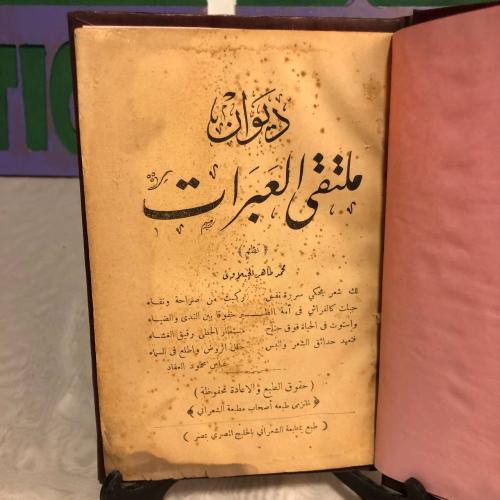 TIC
ديوان
ملتقى العبرات
( نظم )
محمد طاهر الجبلاوى
لك شعر يحكى سريرة نفس ركبت من صراحة ونقاء
حملت كالفراش فى أمة الطير خفوقا بين الندى والضياء
واستوت فى الحياة فوق جناح مستطار الخطى رقيق الغشاء
فتعهد حدائق الشعر والبس حلل الروض واطلع فى السماء
عباس محمود العقاد
( حقوق الطبع والاعادة محفوظة )
طبعه أصحاب مطبعة الشعرانى
( طبع بمطبعة الشعرانى بالخليج المصرى بمصر )